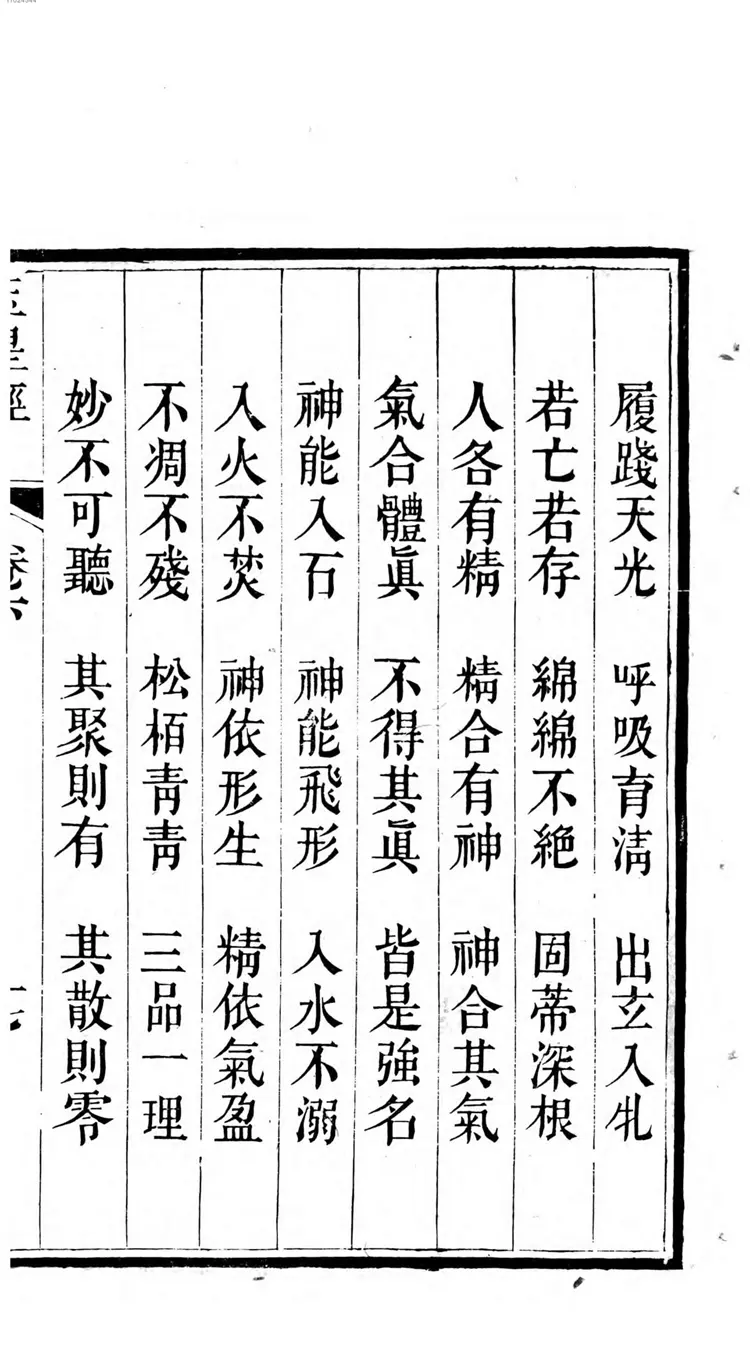 履踐天光　呼吸育淸　出玄入牝
若亡若存　綿綿不絶　固蒂深根
人各有精　精合有神　神合其氣
氣合體眞　不得其眞　皆是強名
神能入石　神能飛形　入水不溺
入火不焚　神依形生　精依氣盈
不凋不殘　松栢靑靑　三品一理
妙不可聽　其聚則有　其散則零
皇經